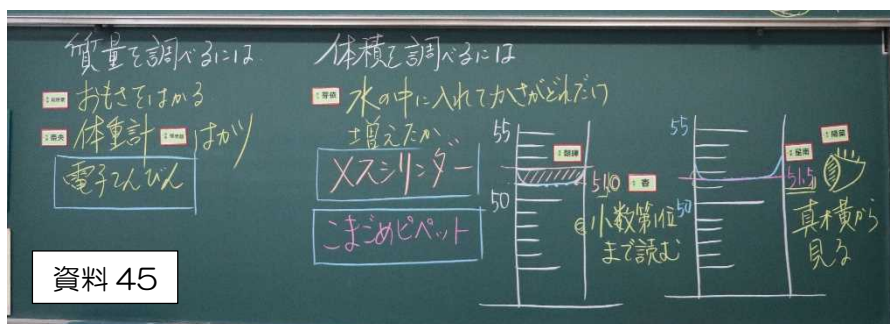 質量を調べるには
おもさをはかる
体重計
はかり
電子てんびん
体積を調べるには
水の中に入れてかさがどれだけ
増えたか
メスシリンダー
こまごめピペット
55
50
小数第1位
まで読む
55
50
51.5
真横から
見る
資料 45